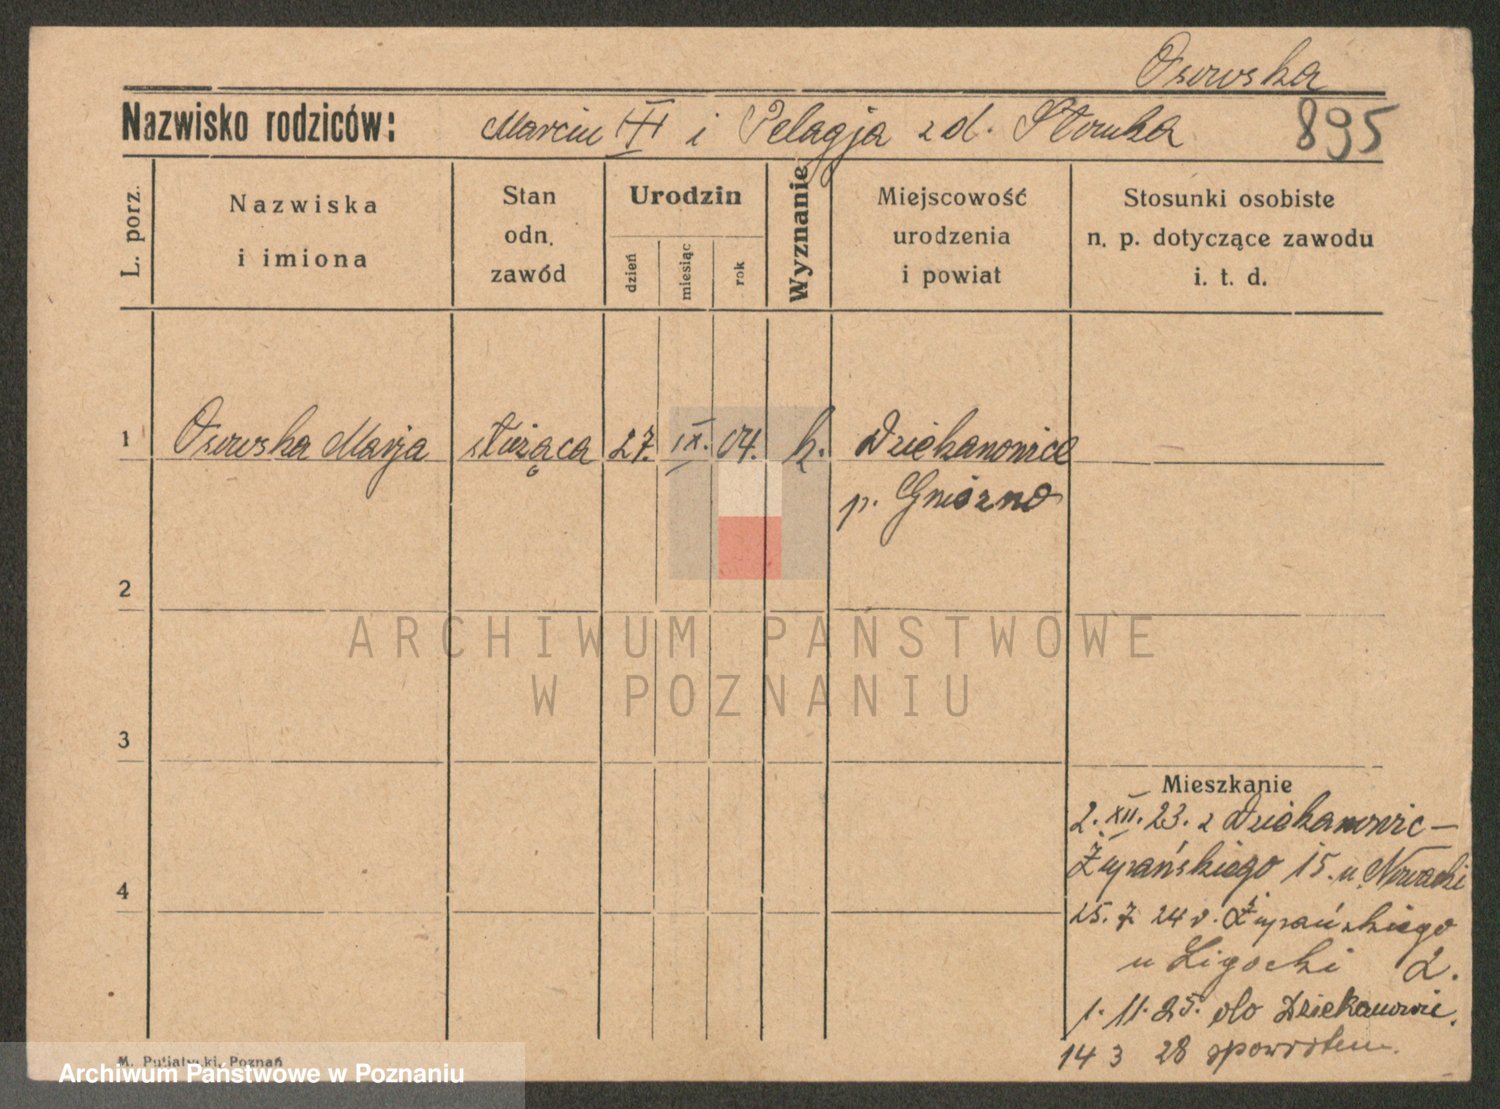 Osowska
Nazwisko rodziców: Marcin i Pelagja z d. Słomka 895
L. porz.
Nazwiska
i imiona
Stan
odn.
zawód
Urodzin
dzień
miesiąc
rok
Wyznanie
Miejscowość
urodzenia
i powiat
Stosunki osobiste
n. p. dotyczące zawodu
i. t. d.
1 Osowska Marja służąca 27. IX. 04. k. Dziekanowice
p. Gniezno
2
3
4
Mieszkanie
2. XII. 23. z Dziekanowic —
Żupańskiego 15. u. Nowacki
25. 7. 24 v. Żupańskiego
u Ligocki 2.
1. 11. 25. do Dziekanowic.
14 3 28 spowrotem.
M. Putiatycki, Poznań
ARCHIWUM PAŃSTWOWE
W POZNANIU
Archiwum Państwowe w Poznaniu